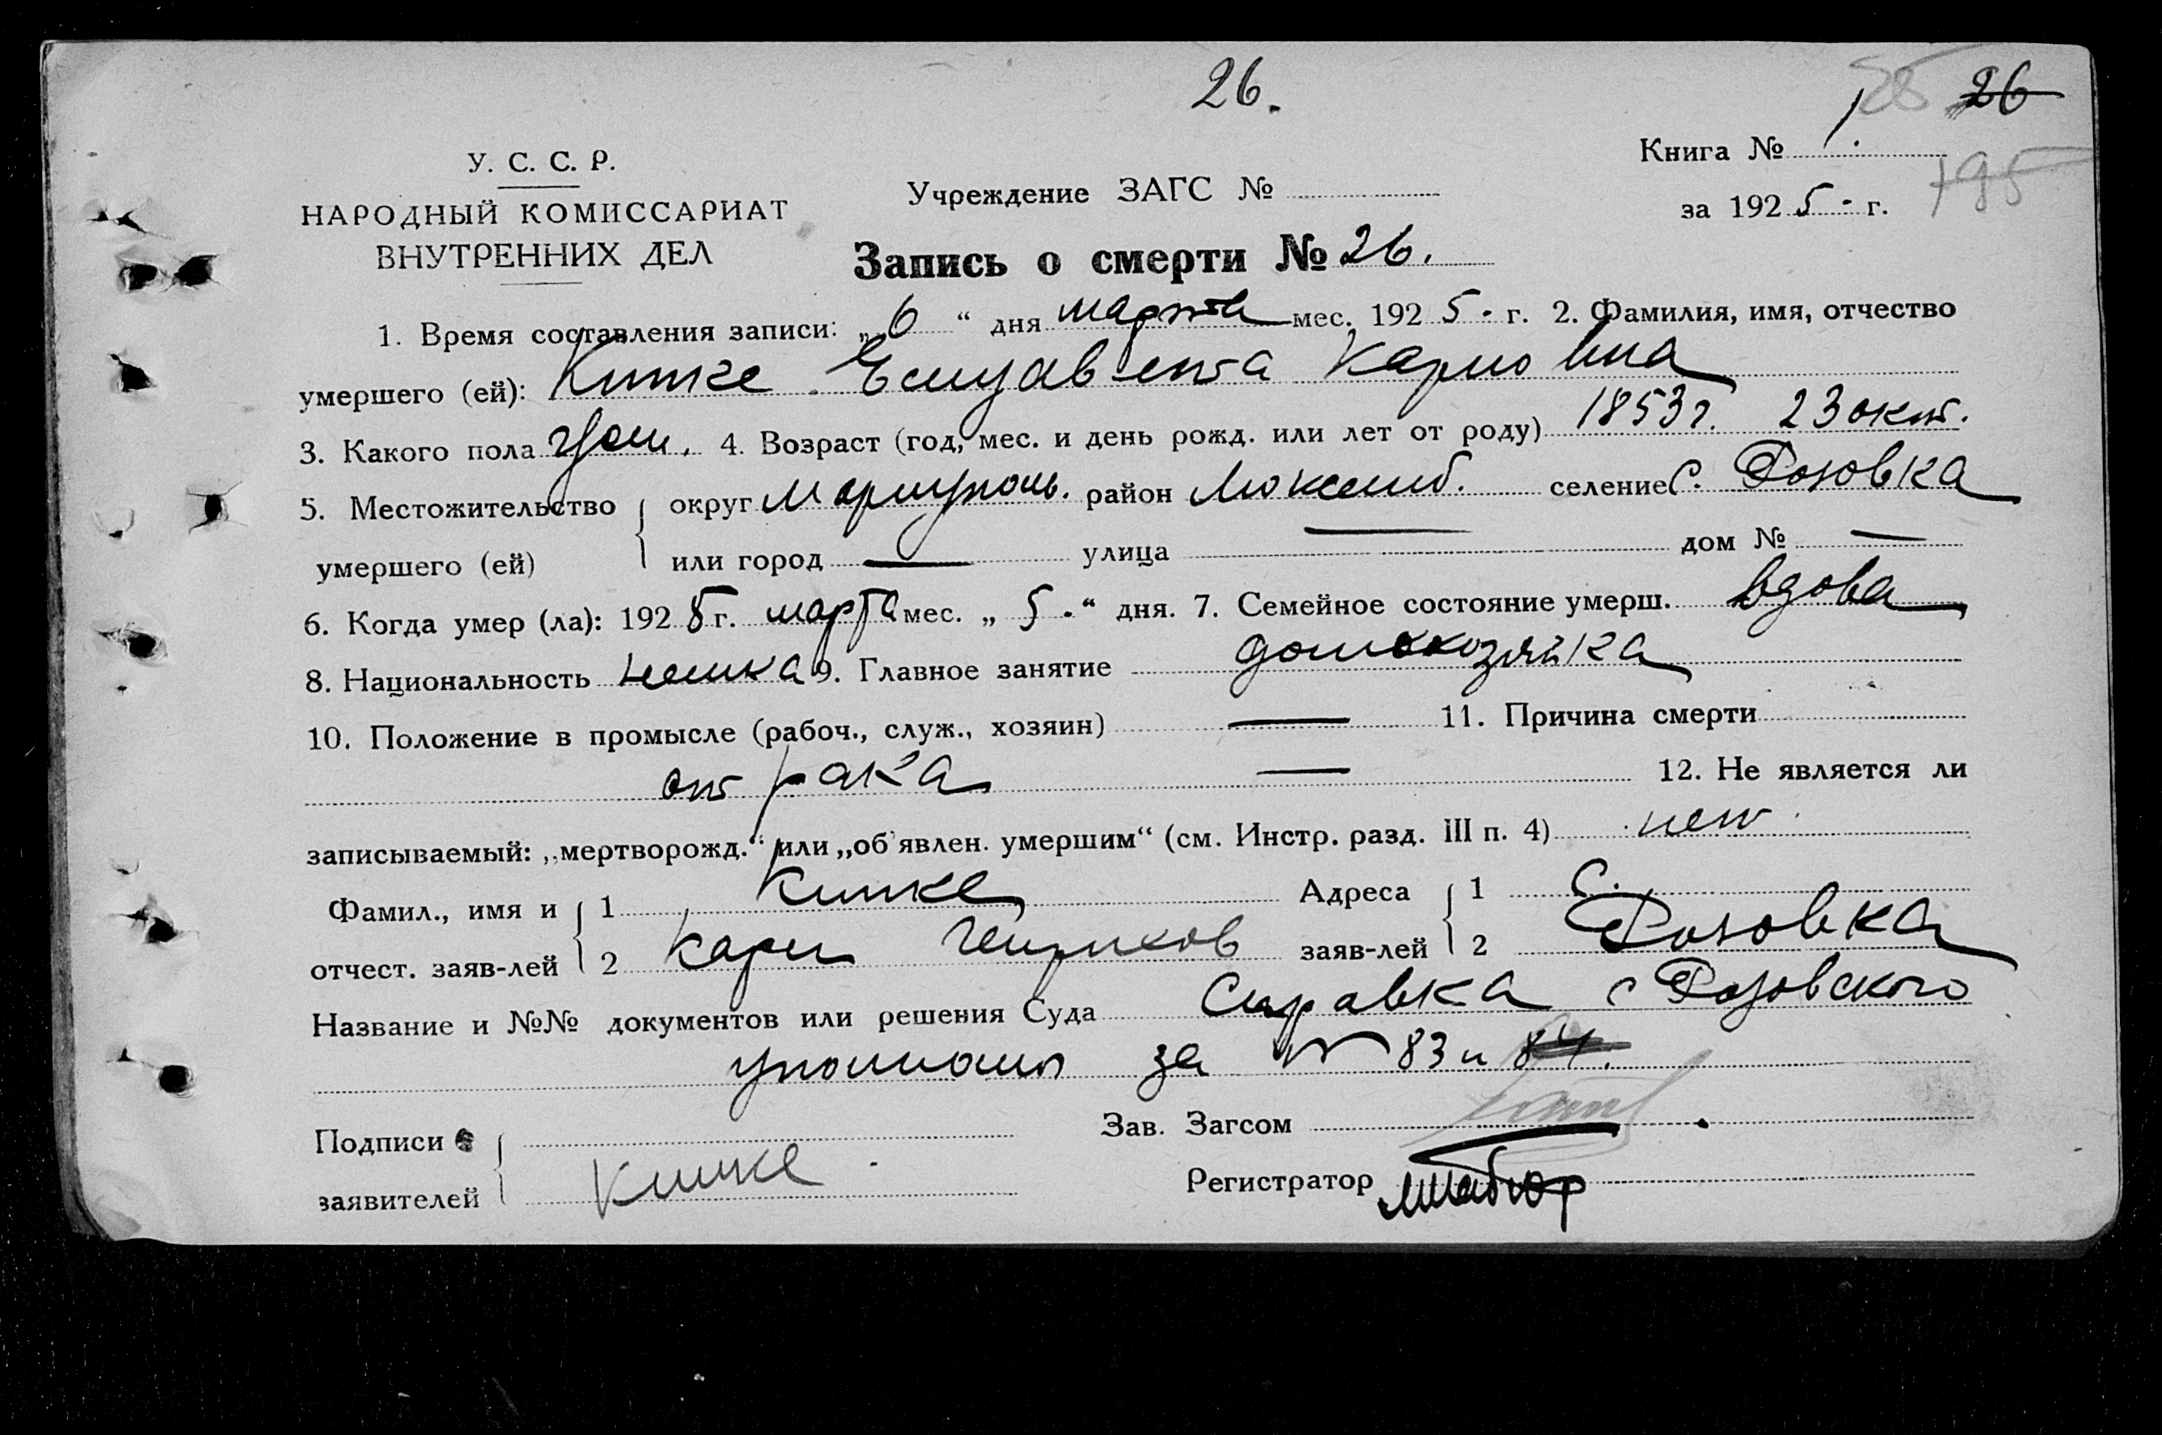 26.
26
У. С. С. Р.
НАРОДНЫЙ КОМИССАРИАТ
ВНУТРЕННИХ ДЕЛ
Учреждение ЗАГС №
Книга № 1.
за 1925 г.
195
Запись о смерти № 26.
1. Время составления записи: „6“ дня марта мес. 1925 г. 2. Фамилия, имя, отчество
умершего (ей): Кипке Елизавета Карловна
3. Какого пола жен. 4. Возраст (год, мес. и день рожд. или лет от роду) 1853 г. 23 окт.
5. Местожительство умершего (ей) округ Мариуполь. район Люксемб. селение с. Розовка
или город — улица — дом № —
6. Когда умер (ла): 1925 г. марта мес. „5.“ дня. 7. Семейное состояние умерш. вдова
8. Национальность немка 9. Главное занятие домохозяйка
10. Положение в промысле (рабоч., служ., хозяин) — 11. Причина смерти
от рака — 12. Не является ли
записываемый: „мертворожд.“ или „об'явлен. умершим“ (см. Инстр. разд. III п. 4) нет
Фамил., имя и 1 Кипке Адреса 1 с.
отчест. заяв-лей 2 Карл Генрихов заяв-лей 2 Розовка
Название и №№ документов или решения Суда Справка с Розовского
уполном за № 83 и 84.
Подписи Зав. Загсом
заявителей Кипке Регистратор